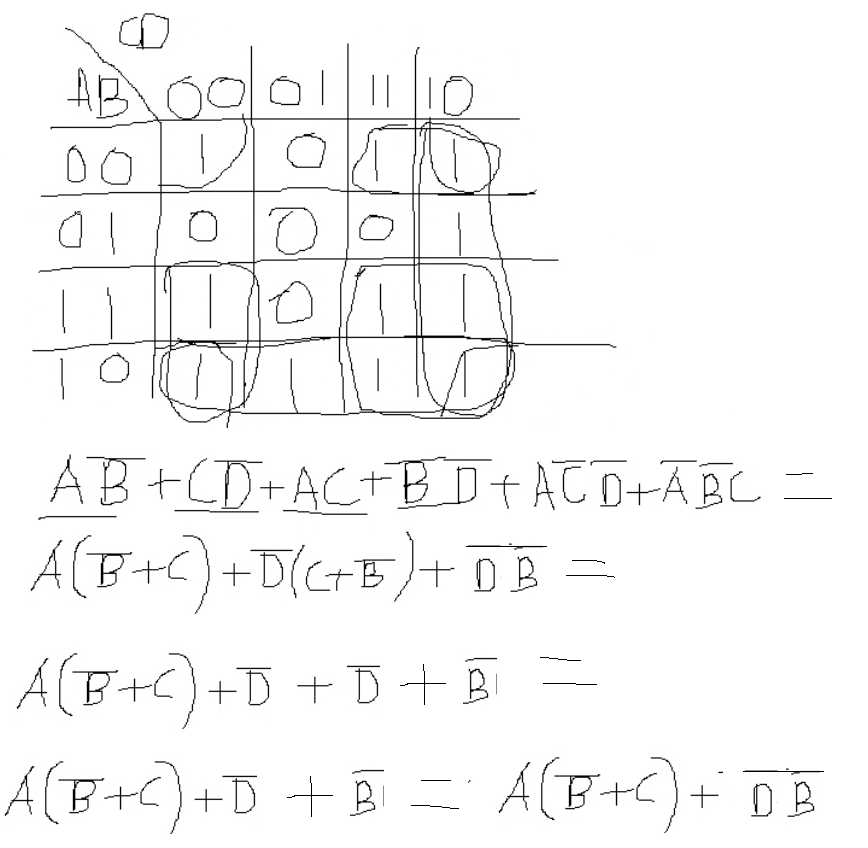 CD
AB 00 01 11 10
00 1 0 1 1
01 0 0 0 1
11 1 0 1 1
10 1 1 1 1
AB̅+CD̅+AC+B̅D̅+AC̅D̅+A̅B̅C=
A(B̅+C)+D̅(C+B̅)+D̅B̅=
A(B̅+C)+D̅+D̅+B̅=
A(B̅+C)+D̅+B̅=A(B̅+C)+D̅B̅